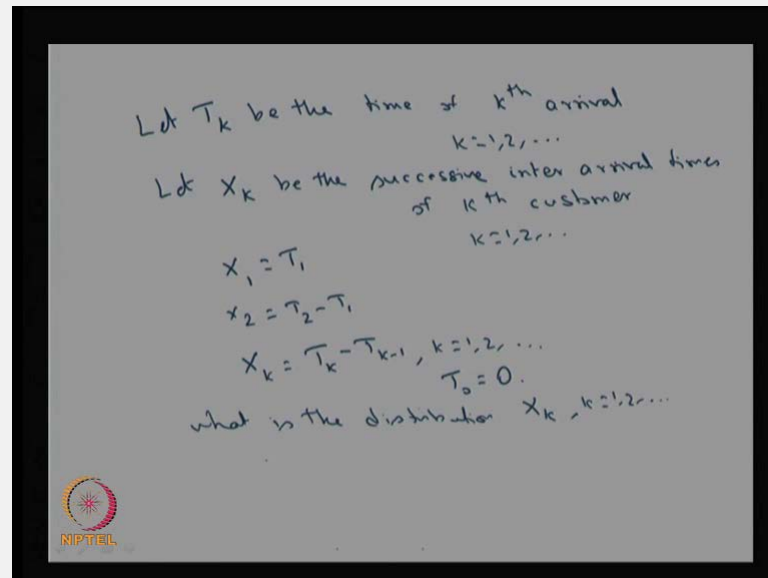 Let T_k be the time of k^th arrival
k=1,2,...
Let X_k be the successive inter arrival times
of kth customer
k=1,2,...
X_1 = T_1
X_2 = T_2 - T_1
X_k = T_k - T_k-1, k=1,2,...
T_0 = 0.
what is the distribution X_k, k=1,2,...
NPTEL